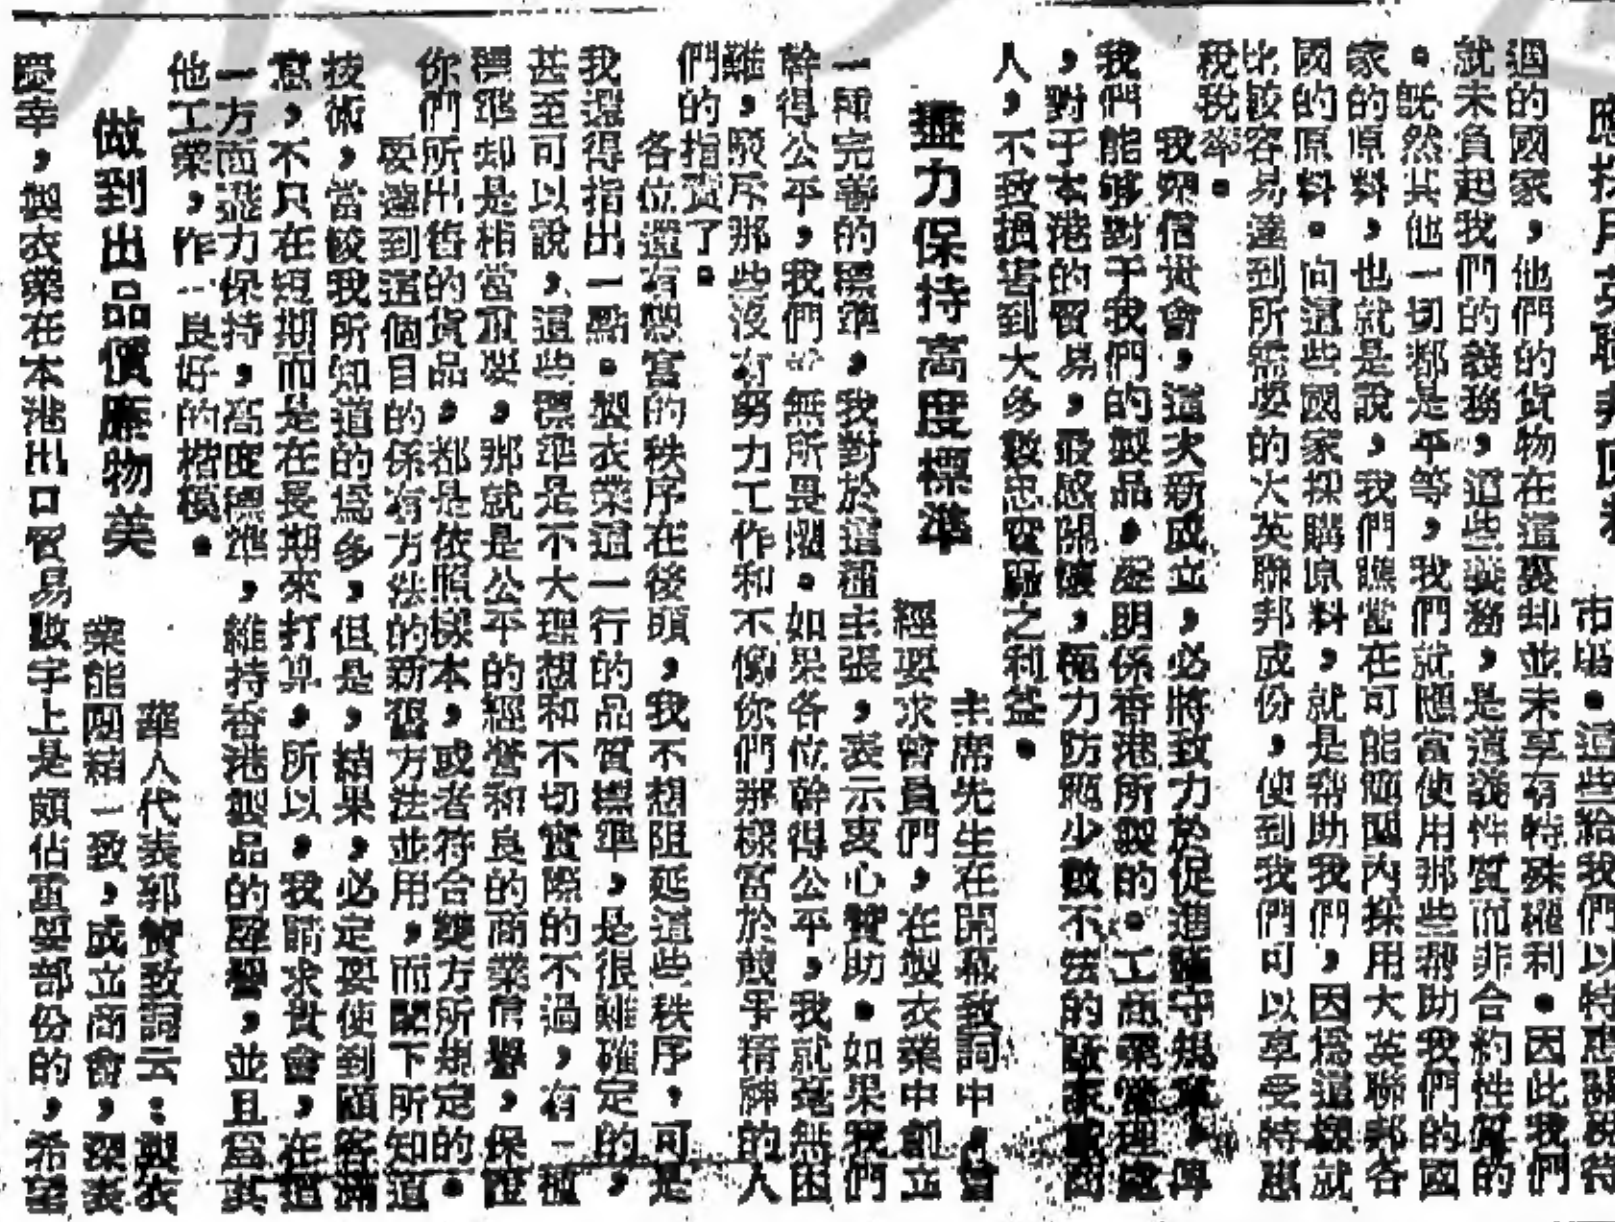 市場。這些給我們以特惠關稅待
遇的國家，他們的貨物在這裏却並未享有特殊權利。因此我們
就未負起我們的義務，這些義務，是道義性質而非合約性質的
。旣然其他一切都是平等，我們就應當使用那些帮助我們的國
家的原料，也就是說，我們應當在可能範圍內採用大英聯邦各
國的原料。向這些國家採購原料，就是帮助我們，因爲這樣就
比較容易達到所需要的大英聯邦成份，使到我們可以享受特惠
稅稅率。
我深信貴會，這次新成立，必將致力於促進
我們能够對于我們的製品，証明係香港所製的。工商業管理處
，對于本港的貿易，最感關懷，極力防範少數不法的
人，不致損害到大多數忠實廠之利益。
盡力保持高度標準
主席先生在開幕致詞中，曾
經要求會員們，在製衣業中創立
一種完善的標準，我對於這種主張，表示衷心贊助。如果我們
幹得公平，我們無所畏懼。如果各位幹得公平，我就毫無困
難，駁斥那些沒有努力工作和不像你們那樣富於競爭精神的人
們的指責了。
各位還有豐富的秩序在後頭，我不想阻延這些秩序，可是
我還得指出一點。製衣業這一行的品質標準，是很難確定的，
甚至可以說，這些標準是不大理想和不切實際的不過，有一種
標準却是相當重要，那就是公平的經營和良的商業信譽，保證
你們所出售的貨品，都是依照樣本，或者符合雙方所規定的。
要達到這個目的係有方法的新舊方法並用，而閣下所知道
技術，當較我所知道的爲多，但是，結果，必定要使到顧客滿
意，不只在短期而是在長期來打算，所以，我請求貴會，在這
一方面盡力保持，高度標準，維持香港製品的聲譽，並且爲其
他工業，作一良好的楷模。
做到出品價廉物美
華人代表郭贊致詞云：製衣
業能團結一致，成立商會，深表
慶幸，製衣業在本港出口貿易數字上是頗佔重要部份的，希望